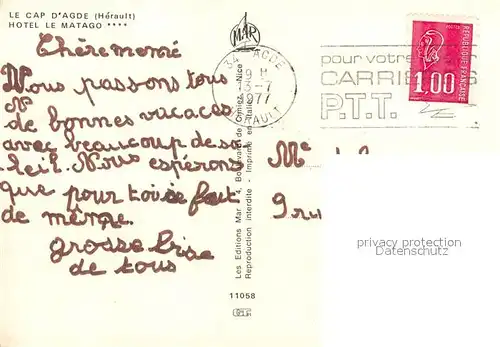 LE CAP D'AGDE (Hérault)
HOTEL LE MATAGO ****
Chère memé
Nous passons tous
de bonnes vacaces
avec beaucoup de so
leil. Nous espérons
que pour toi se fait
de même.
grosse bise
de tous
MAR
Les Editions Mar • 4, Boulevard de Cimiez, Nice
Reproduction interdite - Imprimé en Italie
11058
34 AGDE
19 H
13-7
1977
HERAULT
pour votre
CARRIERES
P.T.T.
REPUBLIQUE FRANÇAISE
1,00
Me
9 ru
privacy protection
Datenschutz